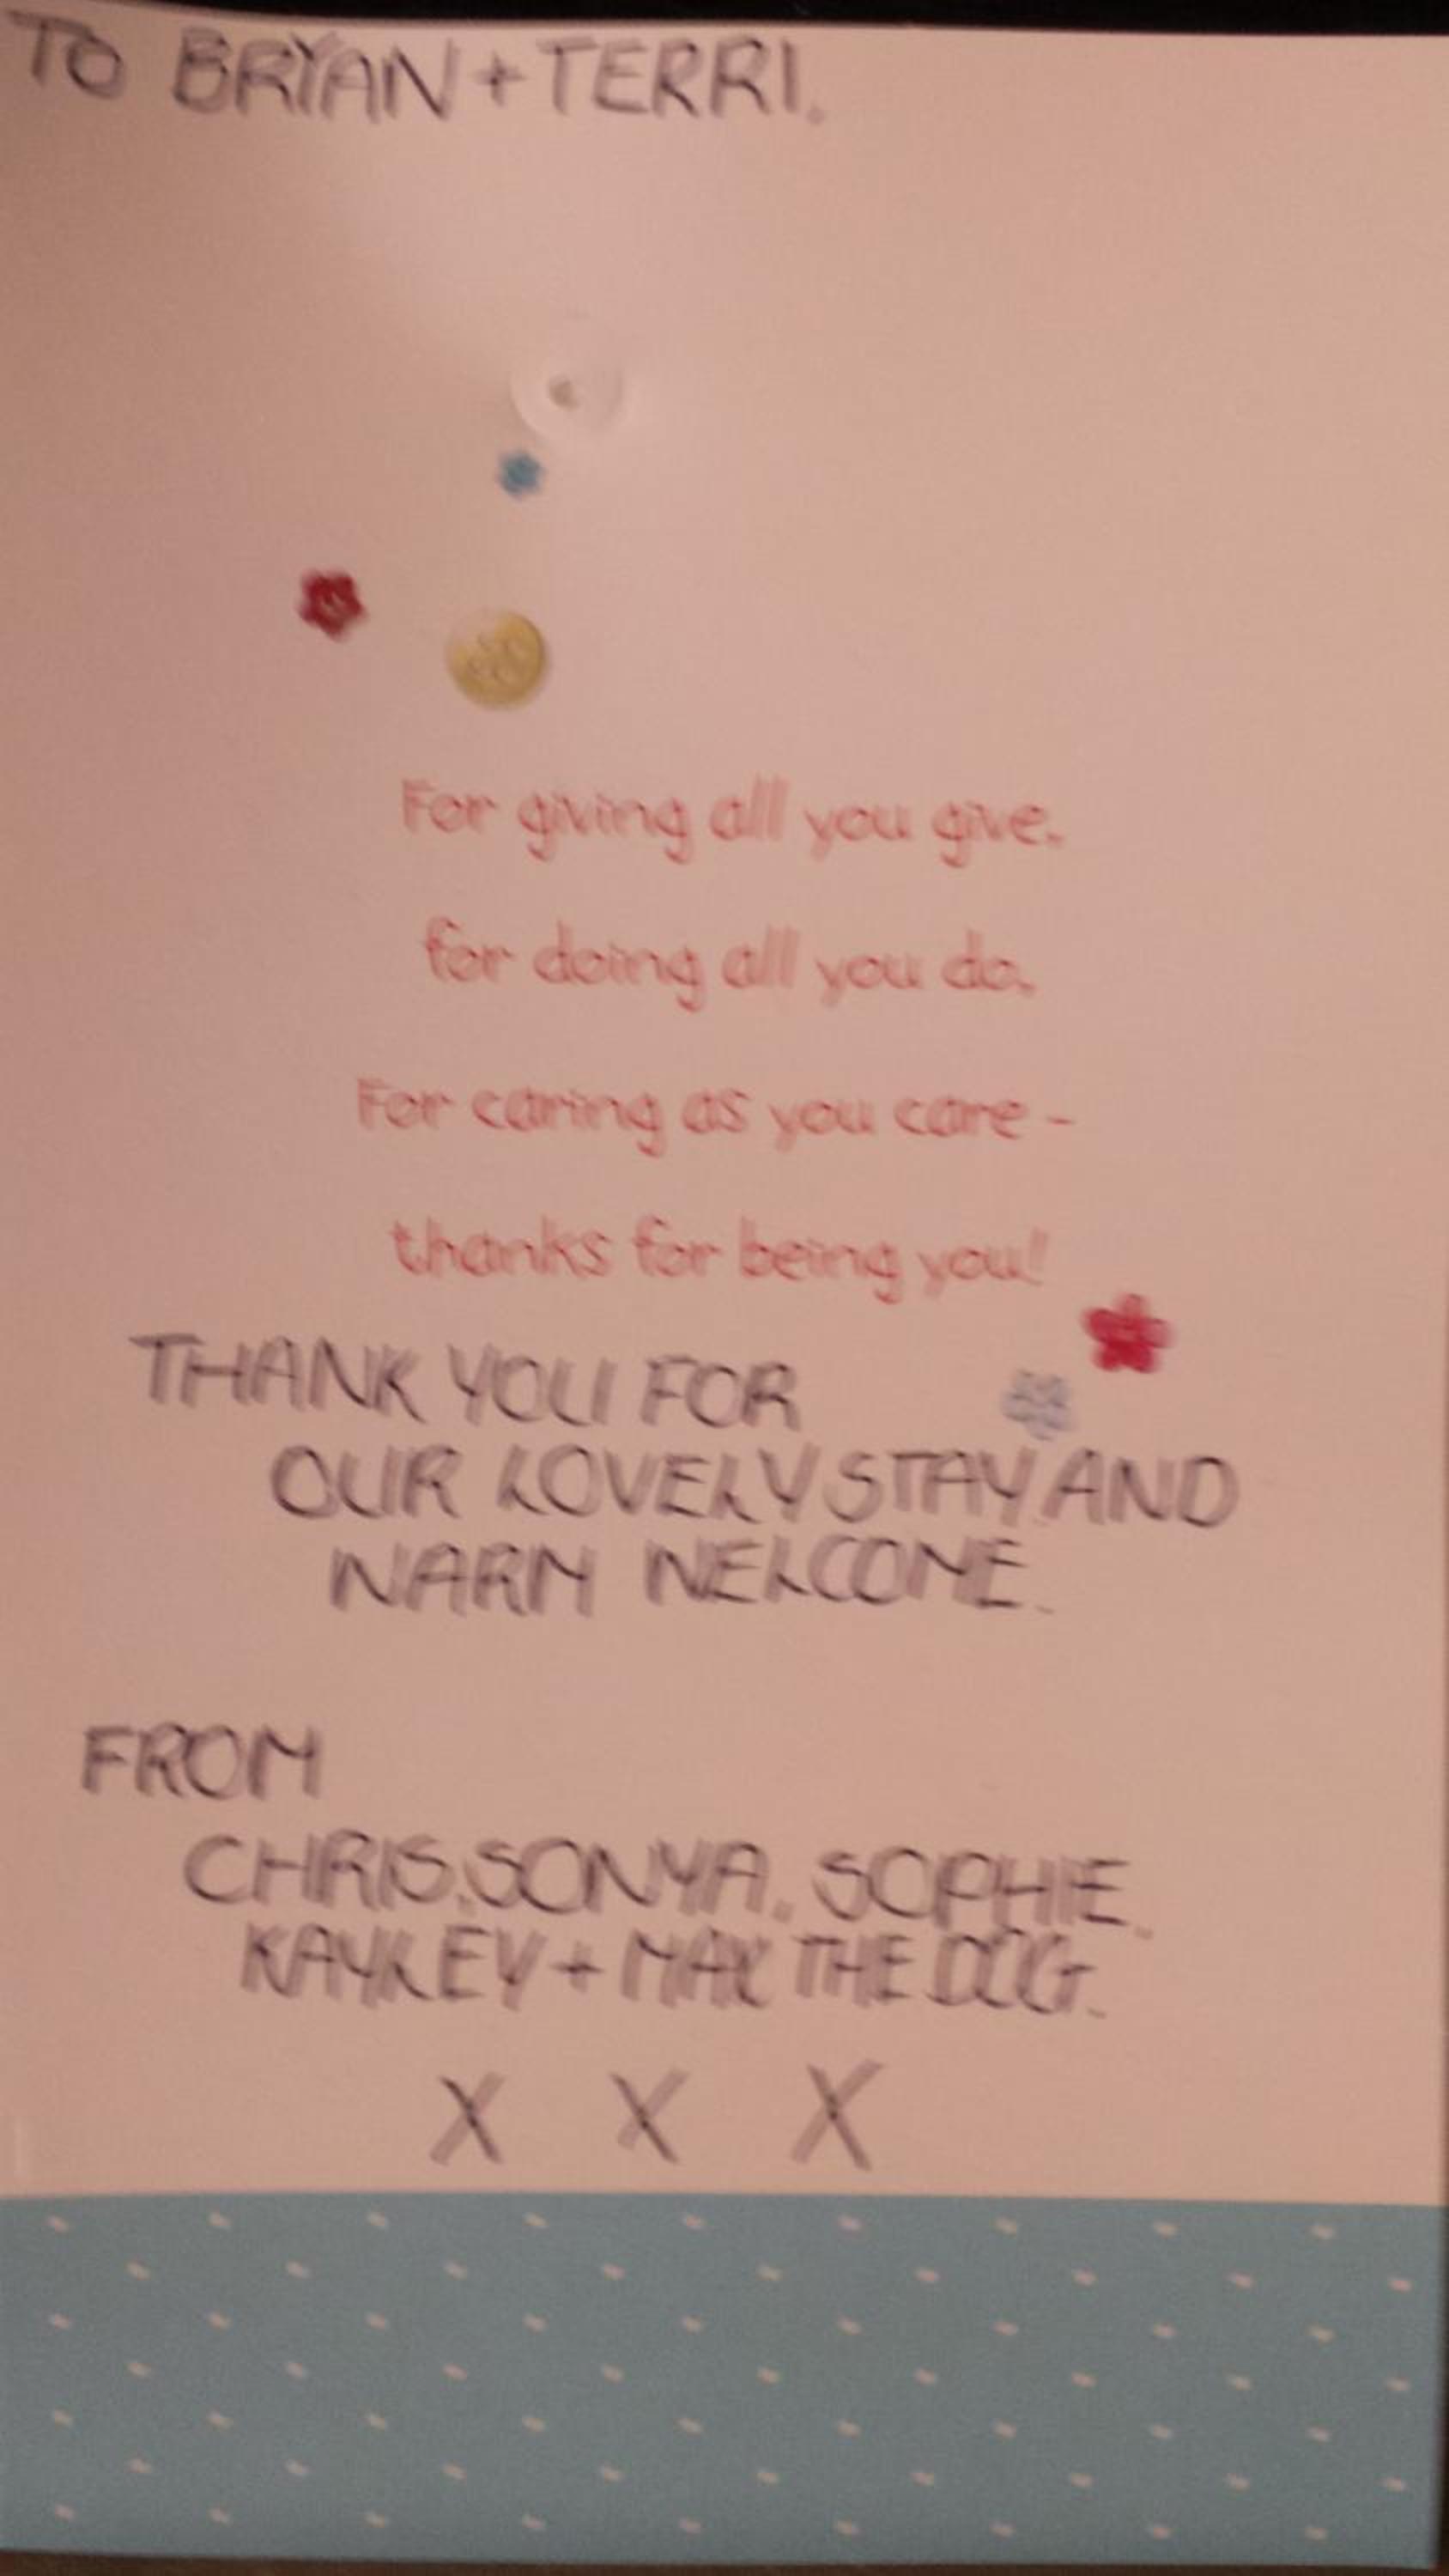 TO BRYAN + TERRI.
For giving all you give,
for doing all you do,
For caring as you care -
thanks for being you!
THANK YOU FOR
OUR LOVELY STAY AND
WARM WELCOME.
FROM
CHRIS, SONYA, SOPHIE,
KAYLEY + MAX THE DOG.
X X X